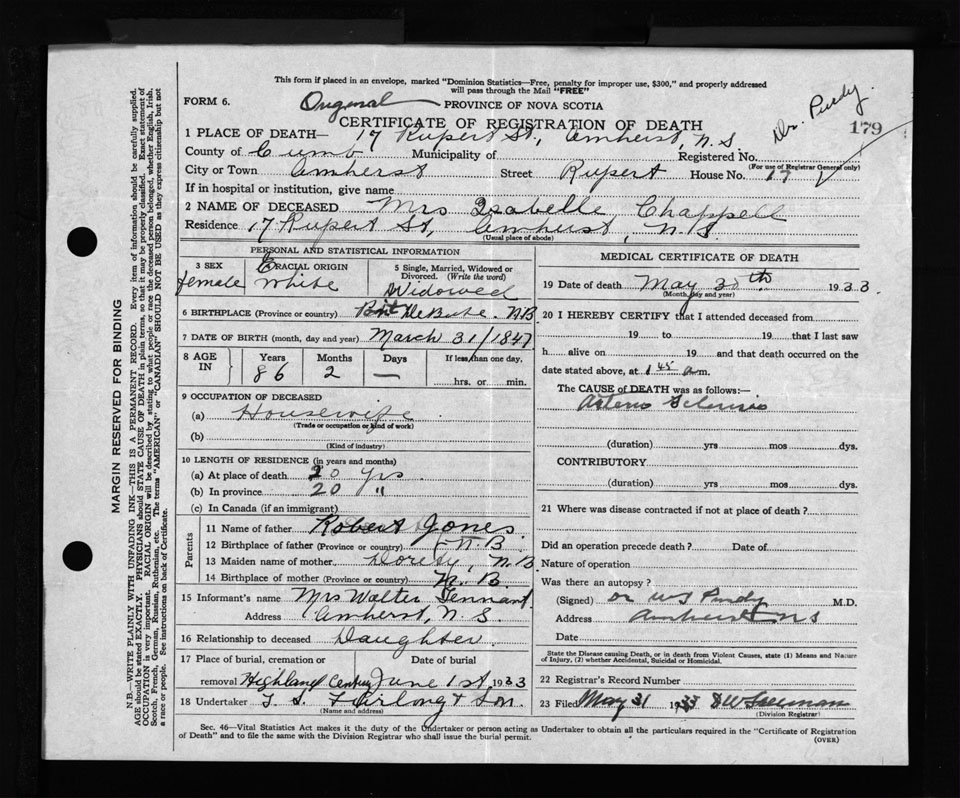 This form if placed in an envelope, marked "Dominion Statistics—Free, penalty for improper use, $300," and properly addressed
will pass through the Mail "FREE"
FORM 6. Original PROVINCE OF NOVA SCOTIA
Dr. Purdy.
179
CERTIFICATE OF REGISTRATION OF DEATH
1 PLACE OF DEATH— 17 Rupert St., Amherst, N.S.
County of Cumb Municipality of Registered No.
(For use of Registrar General only)
City or Town Amherst Street Rupert House No. 17
If in hospital or institution, give name
2 NAME OF DECEASED Mrs Isabelle Chappell
Residence 17 Rupert St, Amherst, N.S.
(Usual place of abode)
PERSONAL AND STATISTICAL INFORMATION
3 SEX female
RACIAL ORIGIN White
5 Single, Married, Widowed or Divorced. (Write the word)
Widowed
6 BIRTHPLACE (Province or country) De Bute. N.B.
7 DATE OF BIRTH (month, day and year) March 31/1847
8 AGE IN Years Months Days If less than one day,
86 2 — hrs. or min.
9 OCCUPATION OF DECEASED
(a) Housewife
(Trade or occupation or kind of work)
(b)
(Kind of industry)
10 LENGTH OF RESIDENCE (in years and months)
(a) At place of death 20 yrs.
(b) In province 20 "
(c) In Canada (if an immigrant)
Parents
11 Name of father Robert Jones.
12 Birthplace of father (Province or country) N.B.
13 Maiden name of mother , N.B.
14 Birthplace of mother (Province or country) N.B.
15 Informant's name Mrs Walter Tennant
Address Amherst, N.S.
16 Relationship to deceased Daughter
17 Place of burial, cremation or removal Date of burial
Highland June 1st, 1933
18 Undertaker & Son.
(Name and address)
MEDICAL CERTIFICATE OF DEATH
19 Date of death May 30th 1933.
(Month, day and year)
20 I HEREBY CERTIFY that I attended deceased from
19 to 19 that I last saw
h alive on 19 and that death occurred on the
date stated above, at 1 45 a.m.
The CAUSE of DEATH was as follows:—
Arterio Sclerosis
(duration) yrs mos dys.
CONTRIBUTORY
(duration) yrs mos dys.
21 Where was disease contracted if not at place of death?
Did an operation precede death? Date of
Nature of operation
Was there an autopsy?
(Signed) Dr W S Purdy M.D.
Address Amherst NS
Date
State the Disease causing Death, or in death from Violent Causes, state (1) Means and Nature
of Injury, (2) whether Accidental, Suicidal or Homicidal.
22 Registrar's Record Number
23 Filed May 31 1933
(Division Registrar)
Sec. 46—Vital Statistics Act makes it the duty of the Undertaker or person acting as Undertaker to obtain all the particulars required in the "Certificate of Registration
of Death" and to file the same with the Division Registrar who shall issue the burial permit. (OVER)
MARGIN RESERVED FOR BINDING
N.B.—WRITE PLAINLY WITH UNFADING INK—THIS IS A PERMANENT RECORD. Every item of information should be carefully supplied.
AGE should be stated EXACTLY. PHYSICIANS should STATE CAUSE OF DEATH in plain terms, so that it may be properly classified. Exact statement of
OCCUPATION is very important. RACIAL ORIGIN will be described by stating to what people or race the deceased person belonged, whether English, Irish,
Scotch, French, German, Russian, Ruthenian, etc. The terms "AMERICAN" or "CANADIAN" SHOULD NOT BE USED as they express citizenship but not
a race or people. See instructions on back of Certificate.